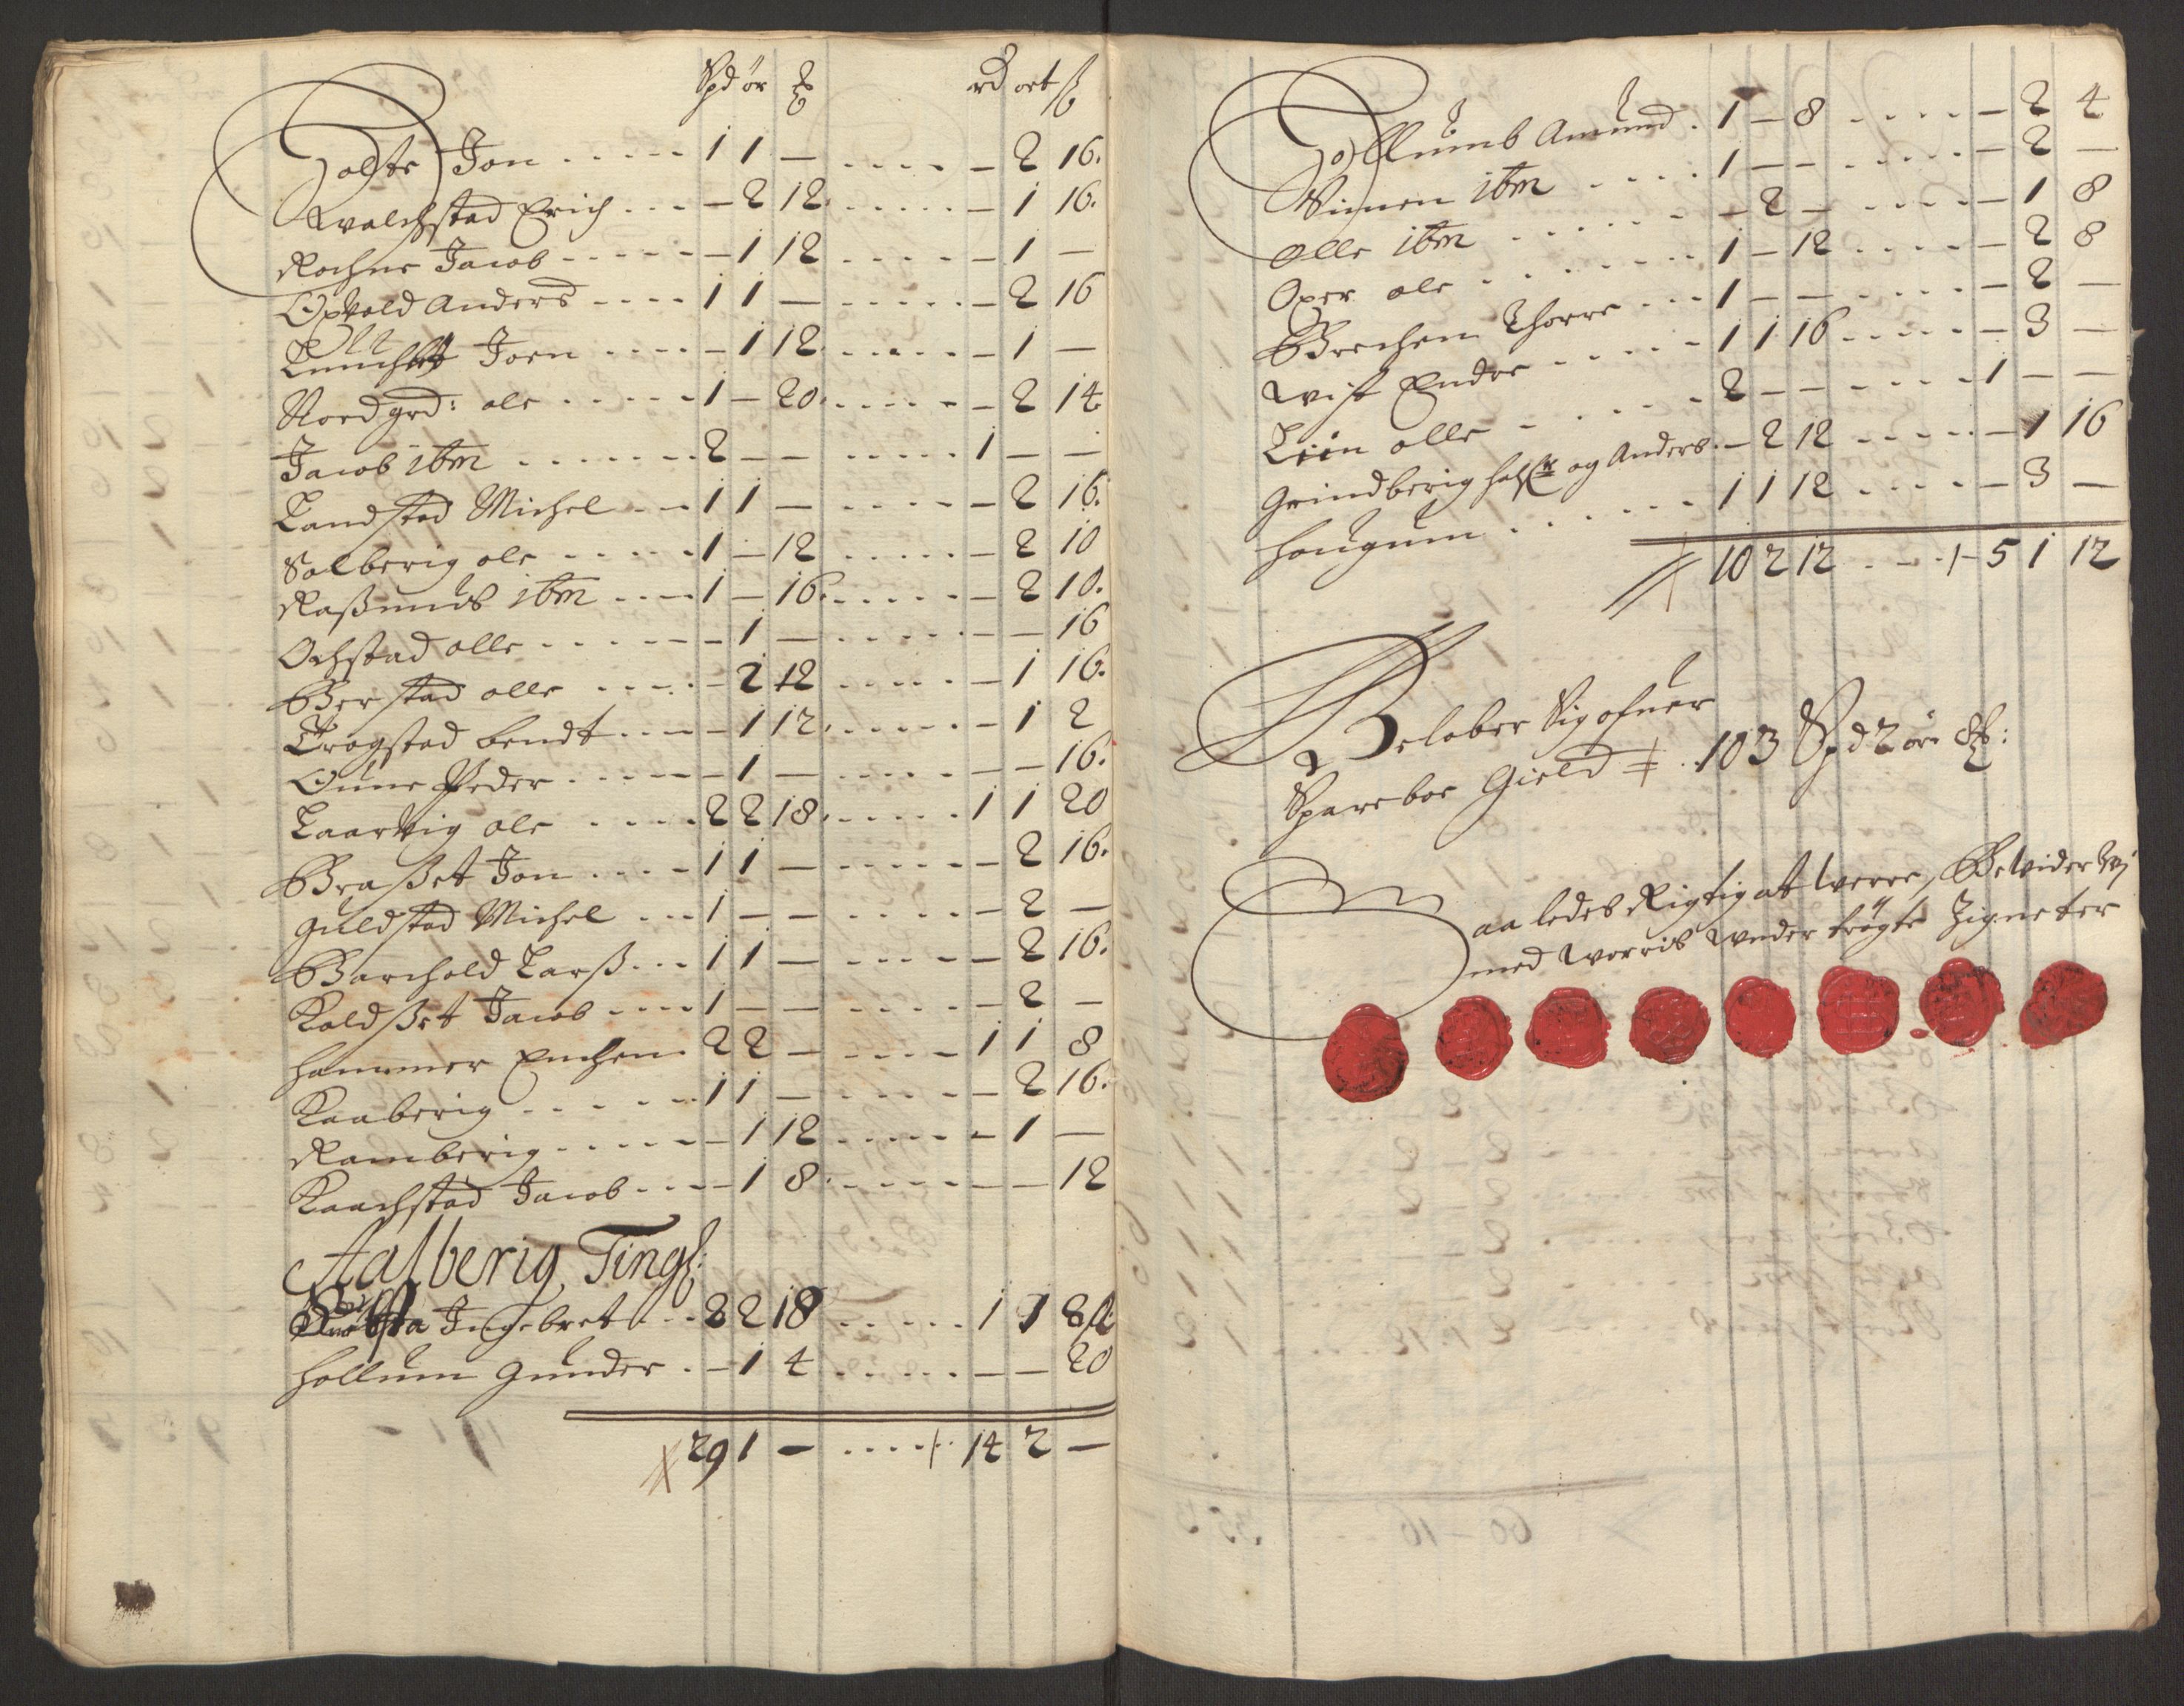 Spd ør ℔ rd ort ß
Holte Jon ..... 1 1 — ..... — 2 16.
Walchstad Erich ... — 2 12 ..... — 1 16.
Rochne Jacob ..... — 1 12 ..... — 1 —
Opvold Anders .... 1 1 — ..... — 2 16
Joen .... — 1 12 ..... — 1 —
Nordgrd: ole ..... 1 — 20 ..... — 2 14
Jacob ibm ...... 2 — — ..... 1 — —
Landstad Michel .. 1 1 — ..... — 2 16.
Solberig ole ..... 1 — 12 ..... — 2 10
Raßmus ibm .... 1 — 16 ..... — 2 10.
Ochstad olle ..... — 1 — ..... — — 16
Berstad olle ..... — 2 12 ..... — 1 16.
Trogstad bendt ... — 1 12 ..... — 1 2
Oune Peder ..... — 1 — ..... — — 16.
Laarvig ole .... 2 2 18 ..... 1 1 20
Braßet Jon .... 1 1 — ..... — 2 16.
Guldstad Michel ... 1 — — ..... — 2 —
Barchold Larß ... 1 1 — ..... — 2 16.
Koldßet Jacob .... 1 — — ..... — 2 —
Hammer Enchen . 2 2 — ..... 1 1 8
Kaaberig ...... 1 1 — ..... — 2 16.
Ramberig ..... — 1 12 ..... — 1 —
Kaachstad Jacob ... — 1 8 ..... — — 12
Aalberig Tingl:
Ingebret .. 2 2 18 ..... 1 1 8
Hollum Gunder . — 1 4 ..... — — 20
29 1 — ..... 14 2 —
Hollumb Amund . 1 — 8 .... — 2 4
Simen ibm .... 1 — — .... — 2 —
Olle ibm ...... — 2 — .... — 1 8
Oxer ole ...... 1 — 12 .... — 2 8
Brechen Thorre ... 1 — — .... — 2 —
Wist Endre ..... 1 1 16 .... — 3 —
Liin olle ..... 2 — — .... 1 — —
Grindberig og Anders . — 2 12 .... — 1 16
Hougum ...... 1 1 12 .... — 3 —
10 2 12 ... 5 1 12
Beløber Sig ofuer
Spareboe Gield 103 Spd 2 ør ℔:
Saaledes Rigtig att werre, Betvider wj
med worris under trøgte Zigneter